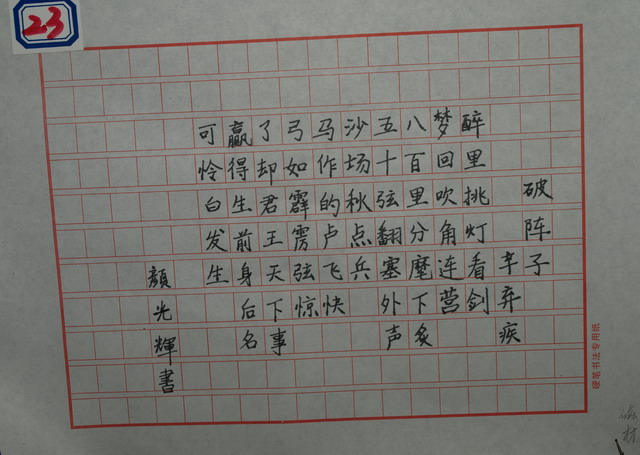 23
破阵子
辛弃疾
醉里挑灯看剑
梦回吹角连营
八百里分麾下炙
五十弦翻塞外声
沙场秋点兵
马作的卢飞快
弓如霹雳弦惊
了却君王天下事
赢得生前身后名
可怜白发生
顏光輝書
硬笔书法专用纸